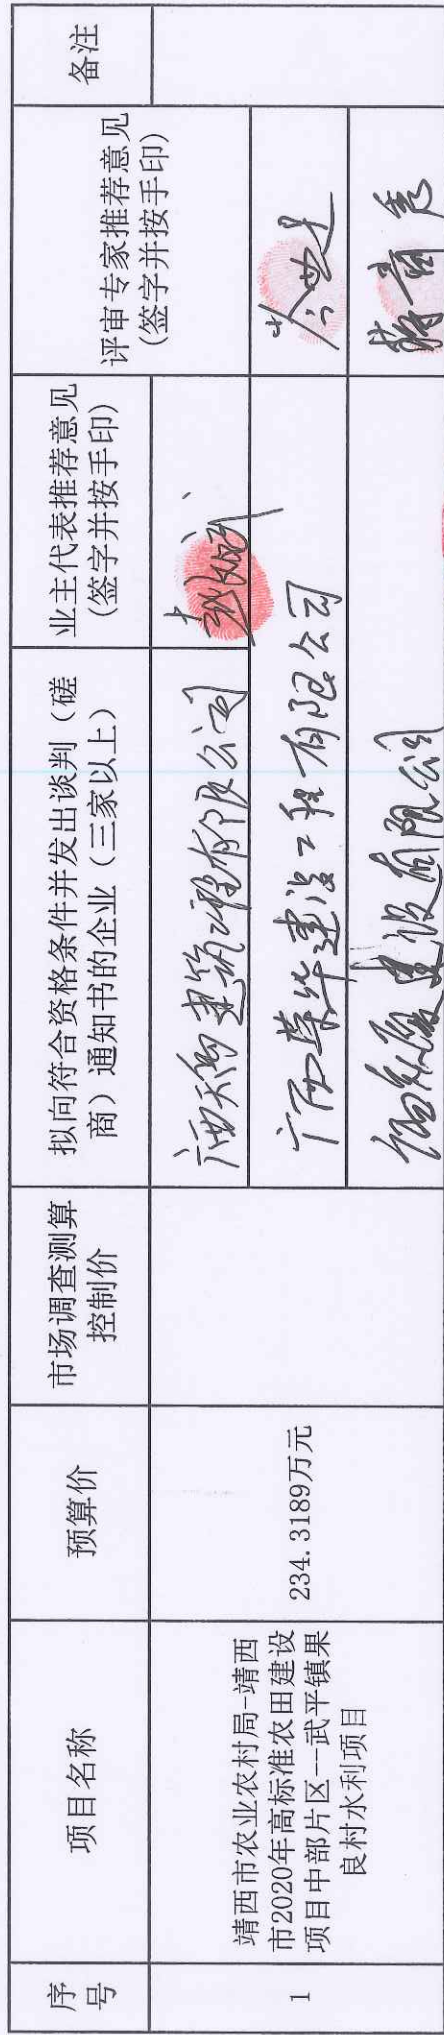 序
号
项目名称
预算价
市场调查测算
控制价
拟向符合资格条件并发出谈判（磋
商）通知书的企业（三家以上）
业主代表推荐意见
(签字并按手印)
评审专家推荐意见
(签字并按手印)
备注
1
靖西市农业农村局-靖西
市2020年高标准农田建设
项目中部片区--武平镇果
良村水利项目
234.3189万元
建筑工程有限公司
广西荣华建设工程有限公司
建设有限公司